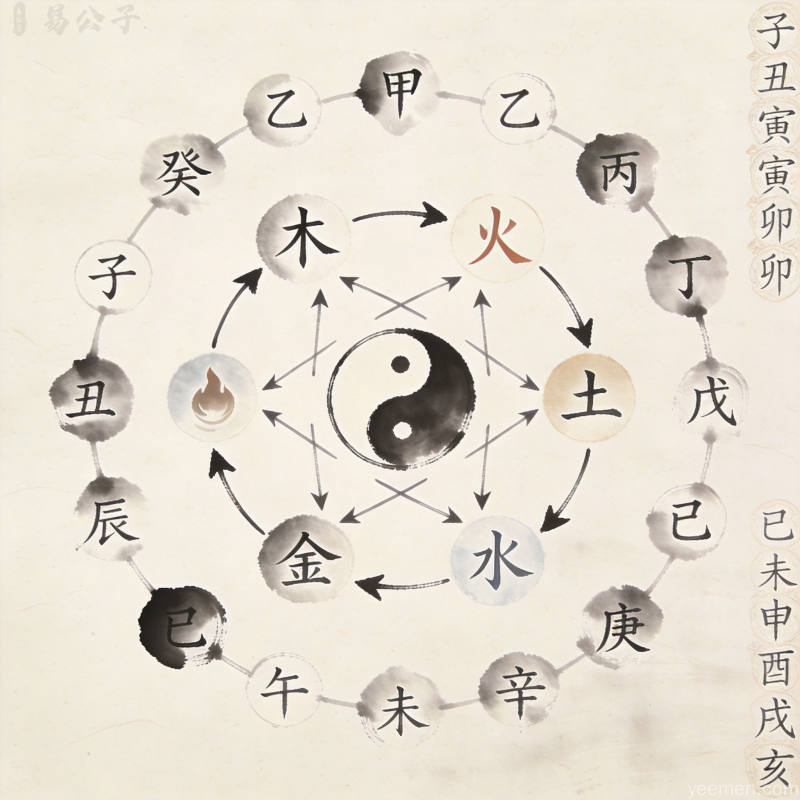 易公子
甲
乙
丙
丁
戊
已
庚
辛
未
午
已
辰
丑
子
癸
乙
木
火
土
水
金
子
丑
寅
寅
卯
卯
已
未
申
酉
戌
亥
yeemen.com